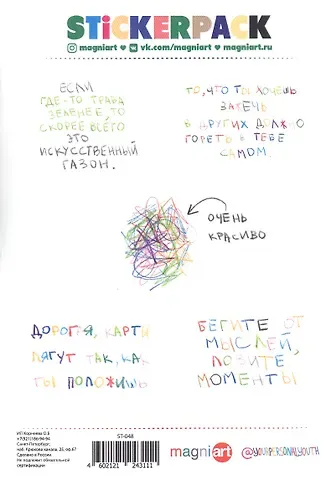 STiCKERPACK
magniart ♥ vk.com/magniart ♥ magniart.ru
ЕСЛИ
ГДЕ-ТО ТРАВА
ЗЕЛЕНЕЕ, ТО
СКОРЕЕ ВСЕГО
ЭТО
ИСКУССТВЕННЫЙ
ГАЗОН.
ТО, ЧТО ТЫ ХОЧЕШЬ
ЗАЖЕЧЬ
В ДРУГИХ ДОЛЖНО
ГОРЕТЬ В ТЕБЕ
САМОМ.
ОЧЕНЬ
КРАСИВО
ДОРОГАЯ, КАРТЫ
ЛЯГУТ ТАК, КАК
ТЫ ПОЛОЖИШЬ
БЕГИТЕ ОТ
МЫСЛЕЙ,
ЛОВИТЕ
МОМЕНТЫ
ИП Корнеева О.В.
+7(921)186-94-94
Санкт-Петербург,
наб. Крюкова канала,
Сделано в России
Не подлежит обязательной
сертификации
ST-048
4 602121 243111
magniart
@YOURPERSONALYOUTH